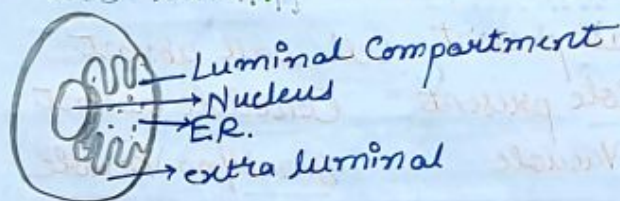 Luminal Compartment
Nucleus
E.R.
extra luminal